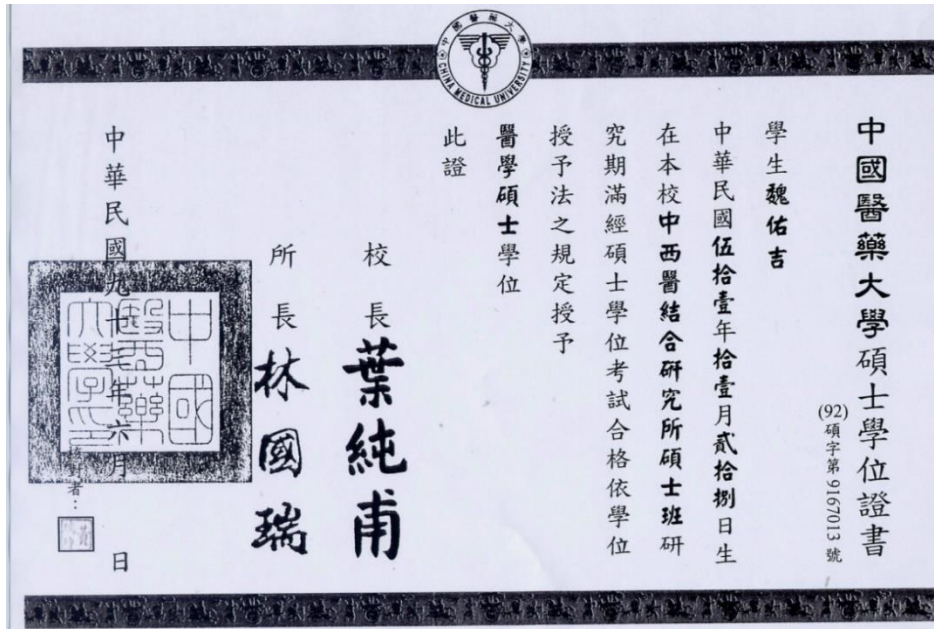 中國醫藥大學
CHINA MEDICAL UNIVERSITY
中國醫藥大學碩士學位證書
(92)碩字第9167013號
學生魏佑吉
中華民國伍拾壹年拾壹月貳拾捌日生
在本校中西醫結合研究所碩士班研
究期滿經碩士學位考試合格依學位
授予法之規定授予
醫學碩士學位
此證
校長葉純甫
所長林國瑞
中國醫藥大學印
中華民國九十三年六月 日
核對者：